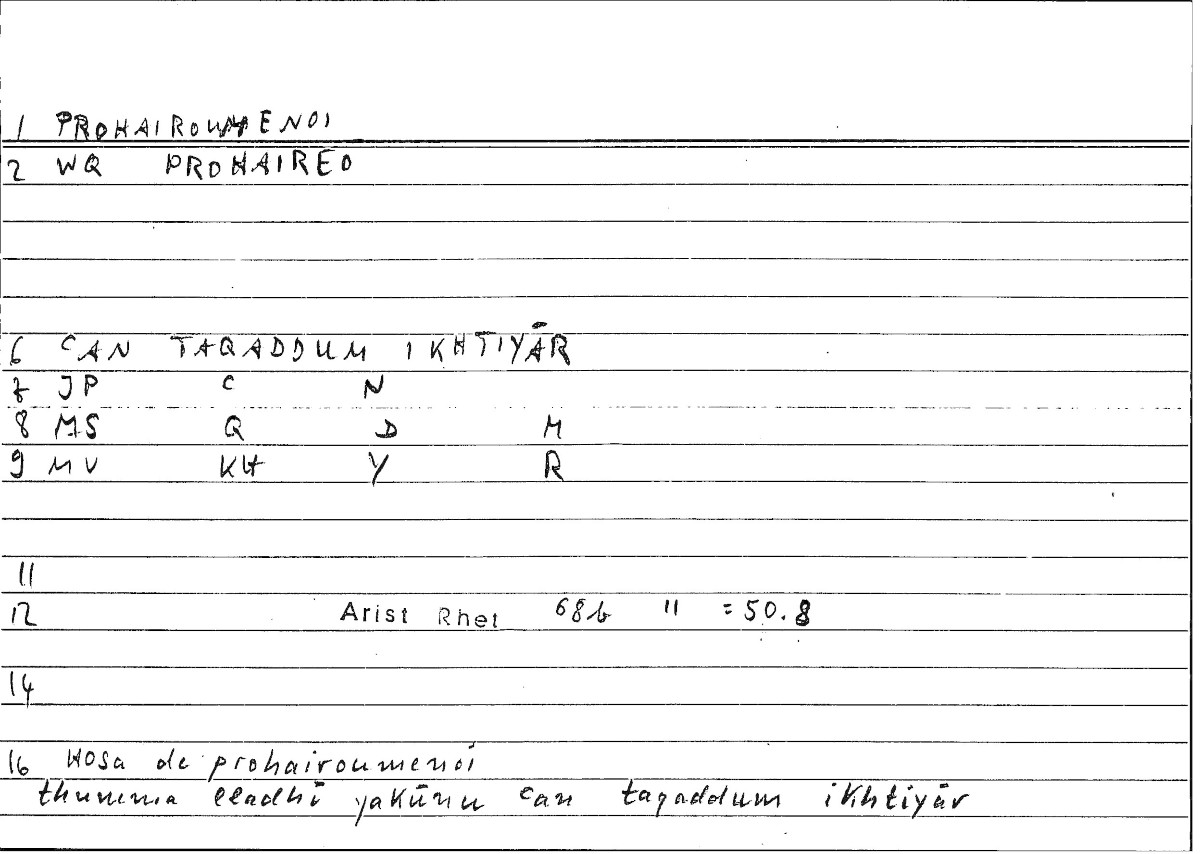 1 PROHAIROUMENOI
2 WQ PROHAIREO
6 CAN TAQADDUM IKHTIYĀR
7 JP C N
8 MS Q D M
9 MV KH Y R
11
12 Arist Rhet 68b 11 =50.8
14
16 Hosa de prohairoumenoi
thumma lladhī yakūnu can taqaddum ikhtiyār